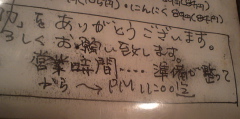 ・にんにく
をありがとうございます。
ろしくお願い致します。
営業時間‥‥準備が整って
から〜→PM11:00迄